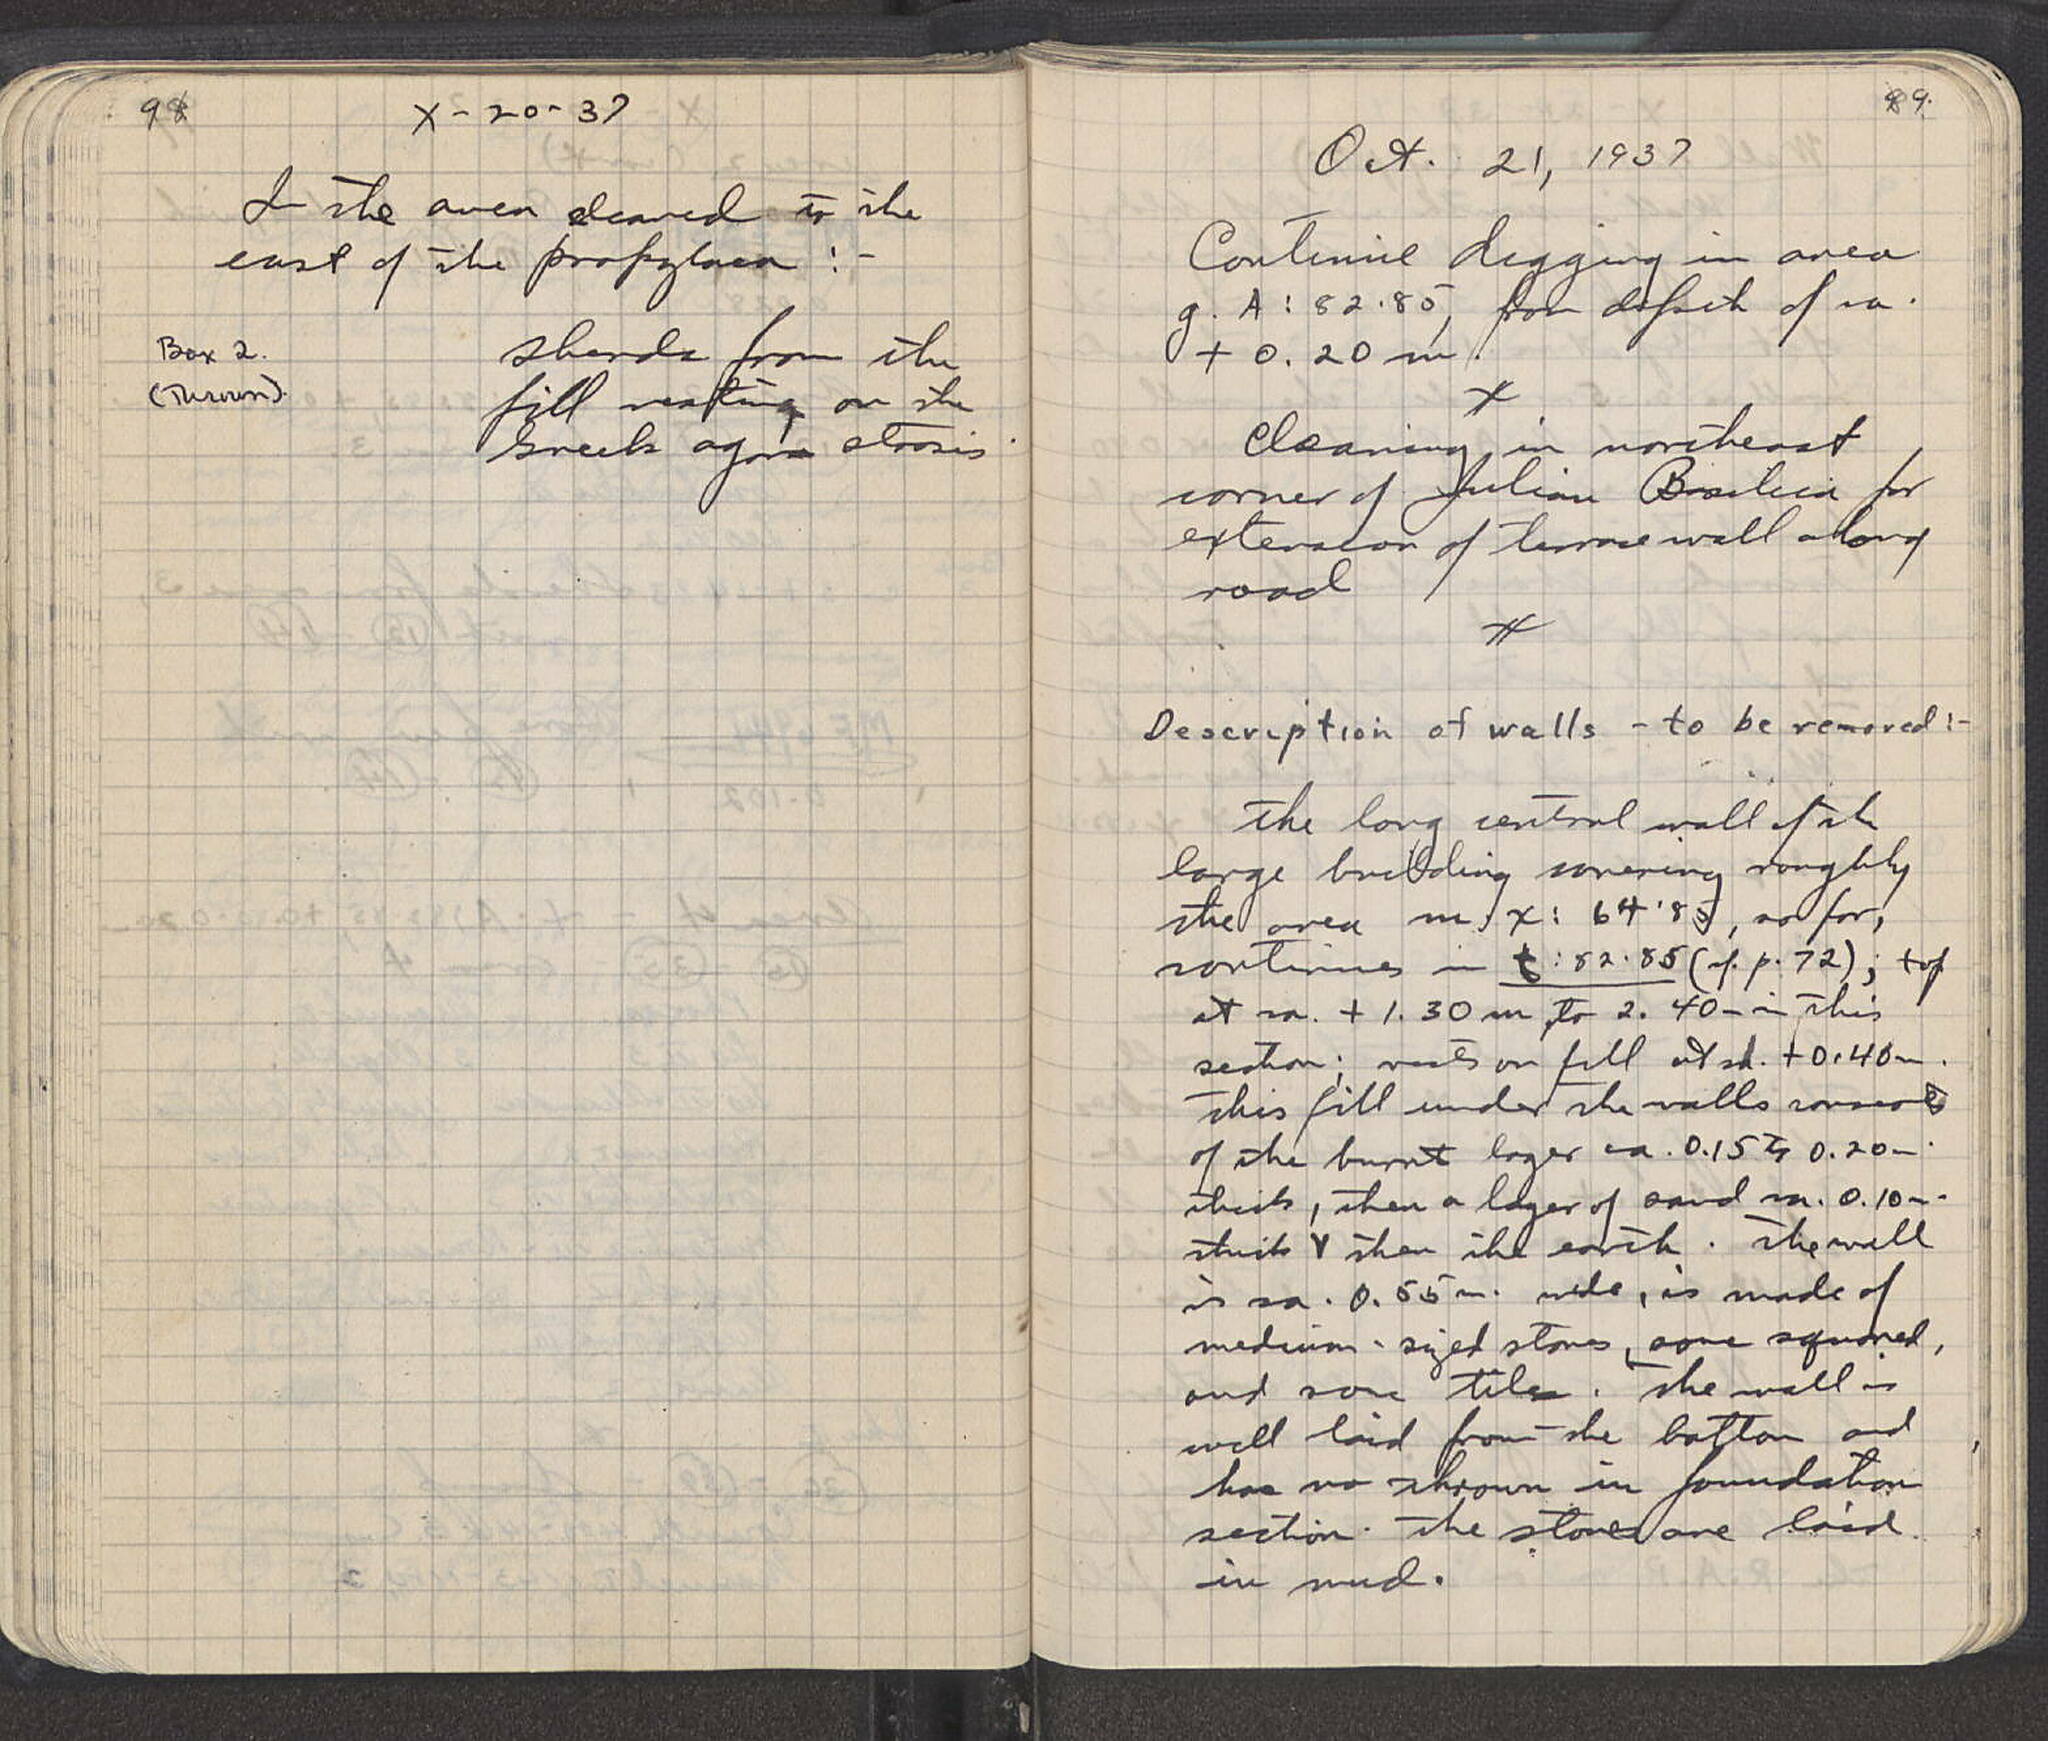 98
X - 20 - 37
In the area cleared to the
east of the propylaea : -
Box 2.
(Thrown).
sherds from the
fill resting on the
Greek agora stosis.
89.
Oct. 21, 1937
Continue digging in area
g. A : 82.85, from depth of ca.
+ 0.20 m.
x
Cleaning in northeast
corner of Julian Basilica for
extension of terrace wall along
road
Description of walls - to be removed :-
The long central wall of the
large building covering roughly
the area m. x : 64.85, so far,
continues in t : 82.85 (cf. p. 72); top
at ca. + 1.30 m to 2.40 m in this
section; rests on fill at ca. +0.40 m.
This fill under the walls consists
of the burnt layer ca. 0.15 to 0.20 m.
thick, then a layer of sand ca. 0.10 m.
thick & then the earth. The wall
is ca. 0.55 m. wide, is made of
medium-sized stones, some squared,
and some tiles. The wall is
well laid from the bottom and
has no thrown in foundation
section. The stones are laid
in mud.